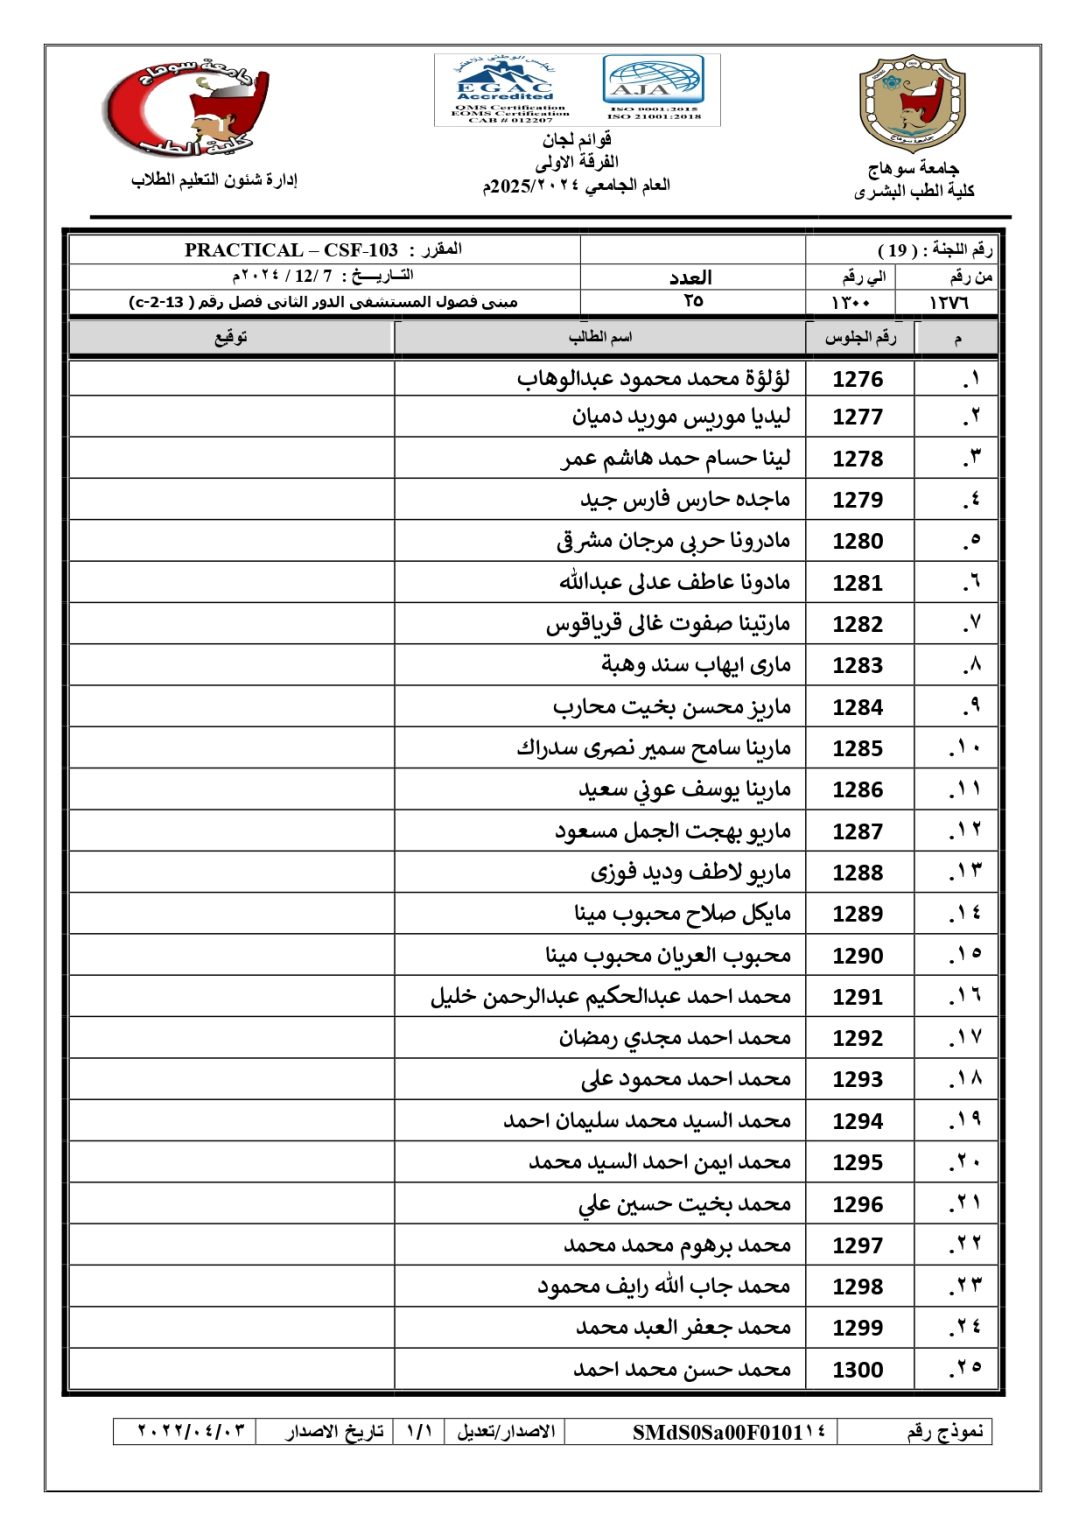 جامعة سوهاج
كلية الطب
إدارة شئون التعليم الطلاب
EGAC
Accredited
QMS Certification
EOMS Certification
CAB # 012207
AJA
ISO 9001:2015
ISO 21001:2018
قوائم لجان
الفرقة الاولى
العام الجامعي ٢٠٢٤/2025م
جامعة سوهاج
كلية الطب البشرى
رقم اللجنة : ( 19 )
المقرر : PRACTICAL – CSF-103
من رقم الي رقم العدد التـاريـــخ : 7 /12 / ٢٠٢٤م
١٢٧٦ ١٣٠٠ ٢٥ مبنى فصول المستشفى الدور الثانى فصل رقم ( c-2-13)
م رقم الجلوس اسم الطالب توقيع
١. 1276 لؤلؤة محمد محمود عبدالوهاب
٢. 1277 ليديا موريس موريد دميان
٣. 1278 لينا حسام حمد هاشم عمر
٤. 1279 ماجده حارس فارس جيد
٥. 1280 مادرونا حربى مرجان مشرقى
٦. 1281 مادونا عاطف عدلى عبدالله
٧. 1282 مارتينا صفوت غالى قرياقوس
٨. 1283 مارى ايهاب سند وهبة
٩. 1284 ماريز محسن بخيت محارب
١٠. 1285 مارينا سامح سمير نصرى سدراك
١١. 1286 مارينا يوسف عوني سعيد
١٢. 1287 ماريو بهجت الجمل مسعود
١٣. 1288 ماريو لاطف وديد فوزى
١٤. 1289 مايكل صلاح محبوب مينا
١٥. 1290 محبوب العريان محبوب مينا
١٦. 1291 محمد احمد عبدالحكيم عبدالرحمن خليل
١٧. 1292 محمد احمد مجدي رمضان
١٨. 1293 محمد احمد محمود على
١٩. 1294 محمد السيد محمد سليمان احمد
٢٠. 1295 محمد ايمن احمد السيد محمد
٢١. 1296 محمد بخيت حسين علي
٢٢. 1297 محمد برهوم محمد محمد
٢٣. 1298 محمد جاب الله رايف محمود
٢٤. 1299 محمد جعفر العبد محمد
٢٥. 1300 محمد حسن محمد احمد
نموذج رقم SMdS0Sa00F0101١٤ الاصدار/تعديل ١/١ تاريخ الاصدار ٢٠٢٢/٠٤/٠٣